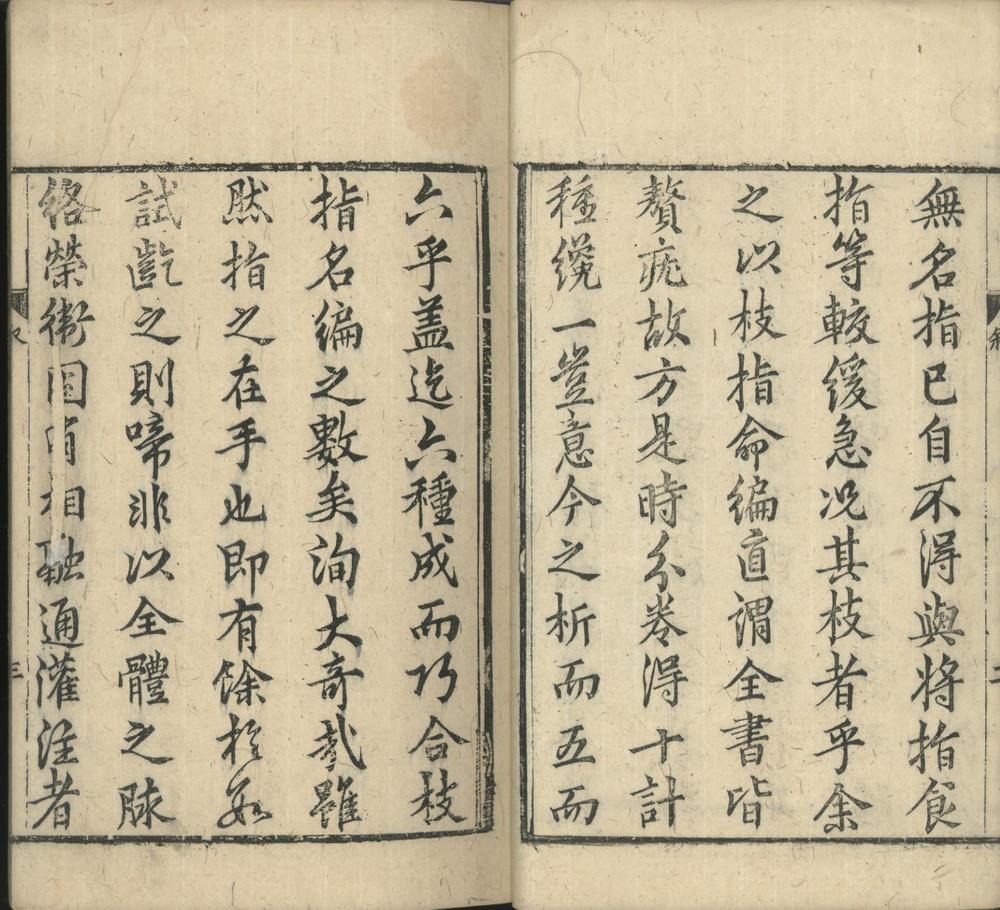 無名指已自不得與將指食
指等較緩急况其枝者乎余
之以枝指命編直謂全書皆
贅疣故方是時分卷得十計
種纔一豈意今之析而五而
六乎盖迄六種成而巧合枝
指名編之數矣洵大奇哉雖
然指之在手也即有餘於数
試齕之則啼非以全體之脉
絡榮衛固有相融通灌注者